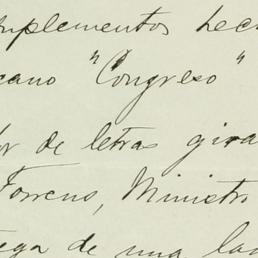 mplementos hec
cano "Congreso"
or de letras gira
Torrens, Ministro
ega de una la